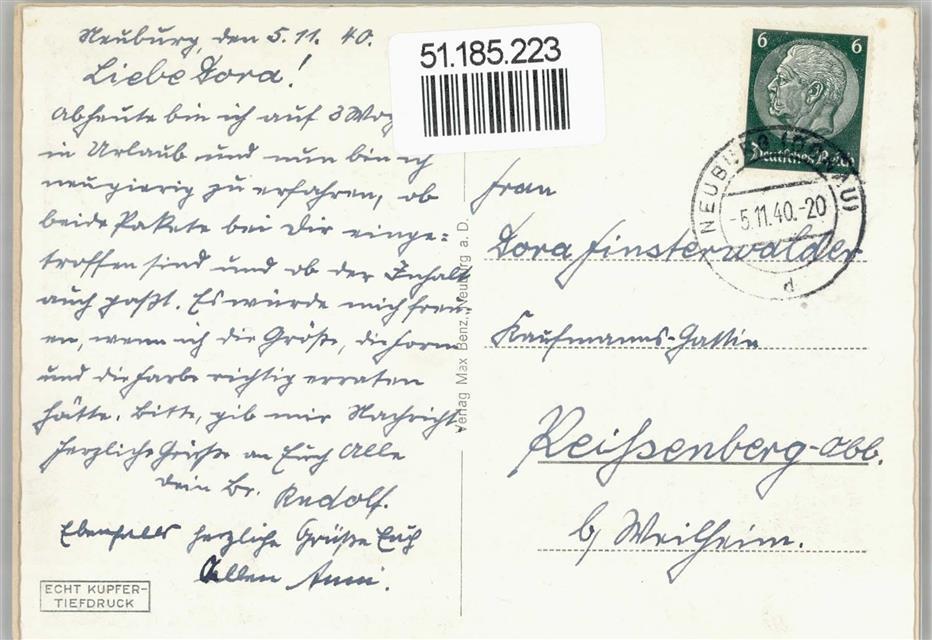 Neuburg, den 5.11.40.
Liebe Dora!
Abheute bin ich auf 3 Wo
in Urlaub und nun bin ich
neugierig zu erfahren, ob
beide Pakete bei Dir einge=
troffen sind und ob der Inhalt
auch paßt. Es würde mich freu-
en, wenn ich die Größe, die Form
und die Farbe richtig erraten
hätte. Bitte, gib mir Nachricht.
Herzliche Grüße an Euch Alle
Dein Br. Rudolf.
Ebenfalls herzliche Grüße Euch
Allen Anni.
ECHT KUPFER-
TIEFDRUCK
Verlag Max Benz, Neuburg a. D.
51.185.223
6 6
Deutsches Reich
NEUBURG (DONAU)
-5.11.40.-20
d
Frau
Dora Finsterwalder
Kaufmanns-Gattin
Peißenberg-Obb.
b/ Weilheim.